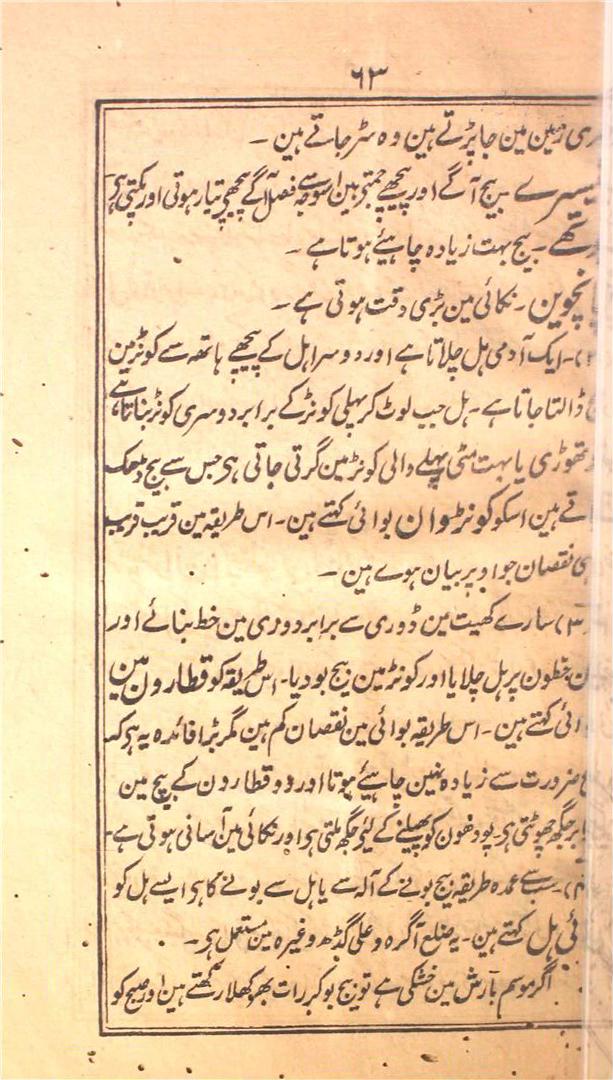 ۶۳
زمین مین جا پڑتے ہین وہ سڑ جاتے ہین ۔
بیج آگے اور پیچھے جمتے ہین اسوجہ سے فصل آگے پیچھے تیار ہوتی اور پکتی ہی
بیج بہت زیادہ چاہیئے ہوتا ہے ۔
نکائی مین بڑی دقت ہوتی ہے ۔
ایک آدمی ہل چلاتا ہے اور دوسرا ہل کے پیچھے ہاتھ سے کونڑ مین
ڈالتا جاتا ہے ۔ ہل جب لوٹ کر پہلی کونڑ کے برابر دوسری کونڑ بناتا ہے
تھوڑی یا بہت مٹی پہلے والی کونڑ مین گرتی جاتی ہی جس سے بیج ڈھک
ہین اسکو کونڑوان بوائی کہتے ہین ۔ اس طریقہ مین قریب قریب
نقصان جو اوپر بیان ہوے ہین ۔
۳) سارے کھیت مین ڈوری سے برابر دوری مین خط بنائے اور
خطون پر ہل چلایا اور کونڑ مین بیج بودیا ۔ اس طریقہ کو قطارون مین
کہتے ہین ۔ اس طریقہ بوائی مین نقصان کم ہین مگر بڑا فائدہ یہ ہی کہ
ضرورت سے زیادہ نہین چاہیئے ہوتا اور دو قطارون کے بیچ مین
جگہ چھوٹتی ہی ۔ پودھون کو پھیلنے کے لئے جگہ ملتی ہی اور نکائی مین آسانی ہوتی ہے ۔
سب سے عمدہ طریقہ بیج بونے کے آلہ سے یا ہل سے بونے کا ہی ایسے ہل کو
ہل کہتے ہین ۔ یہ ضلع آگرہ و علی گڈھ وغیرہ مین مستعمل ہی ۔
اگر موسم بارش مین خشکی ہے تو بیج بو کر رات بھر کھلا رکھتے ہین اور صبح کو